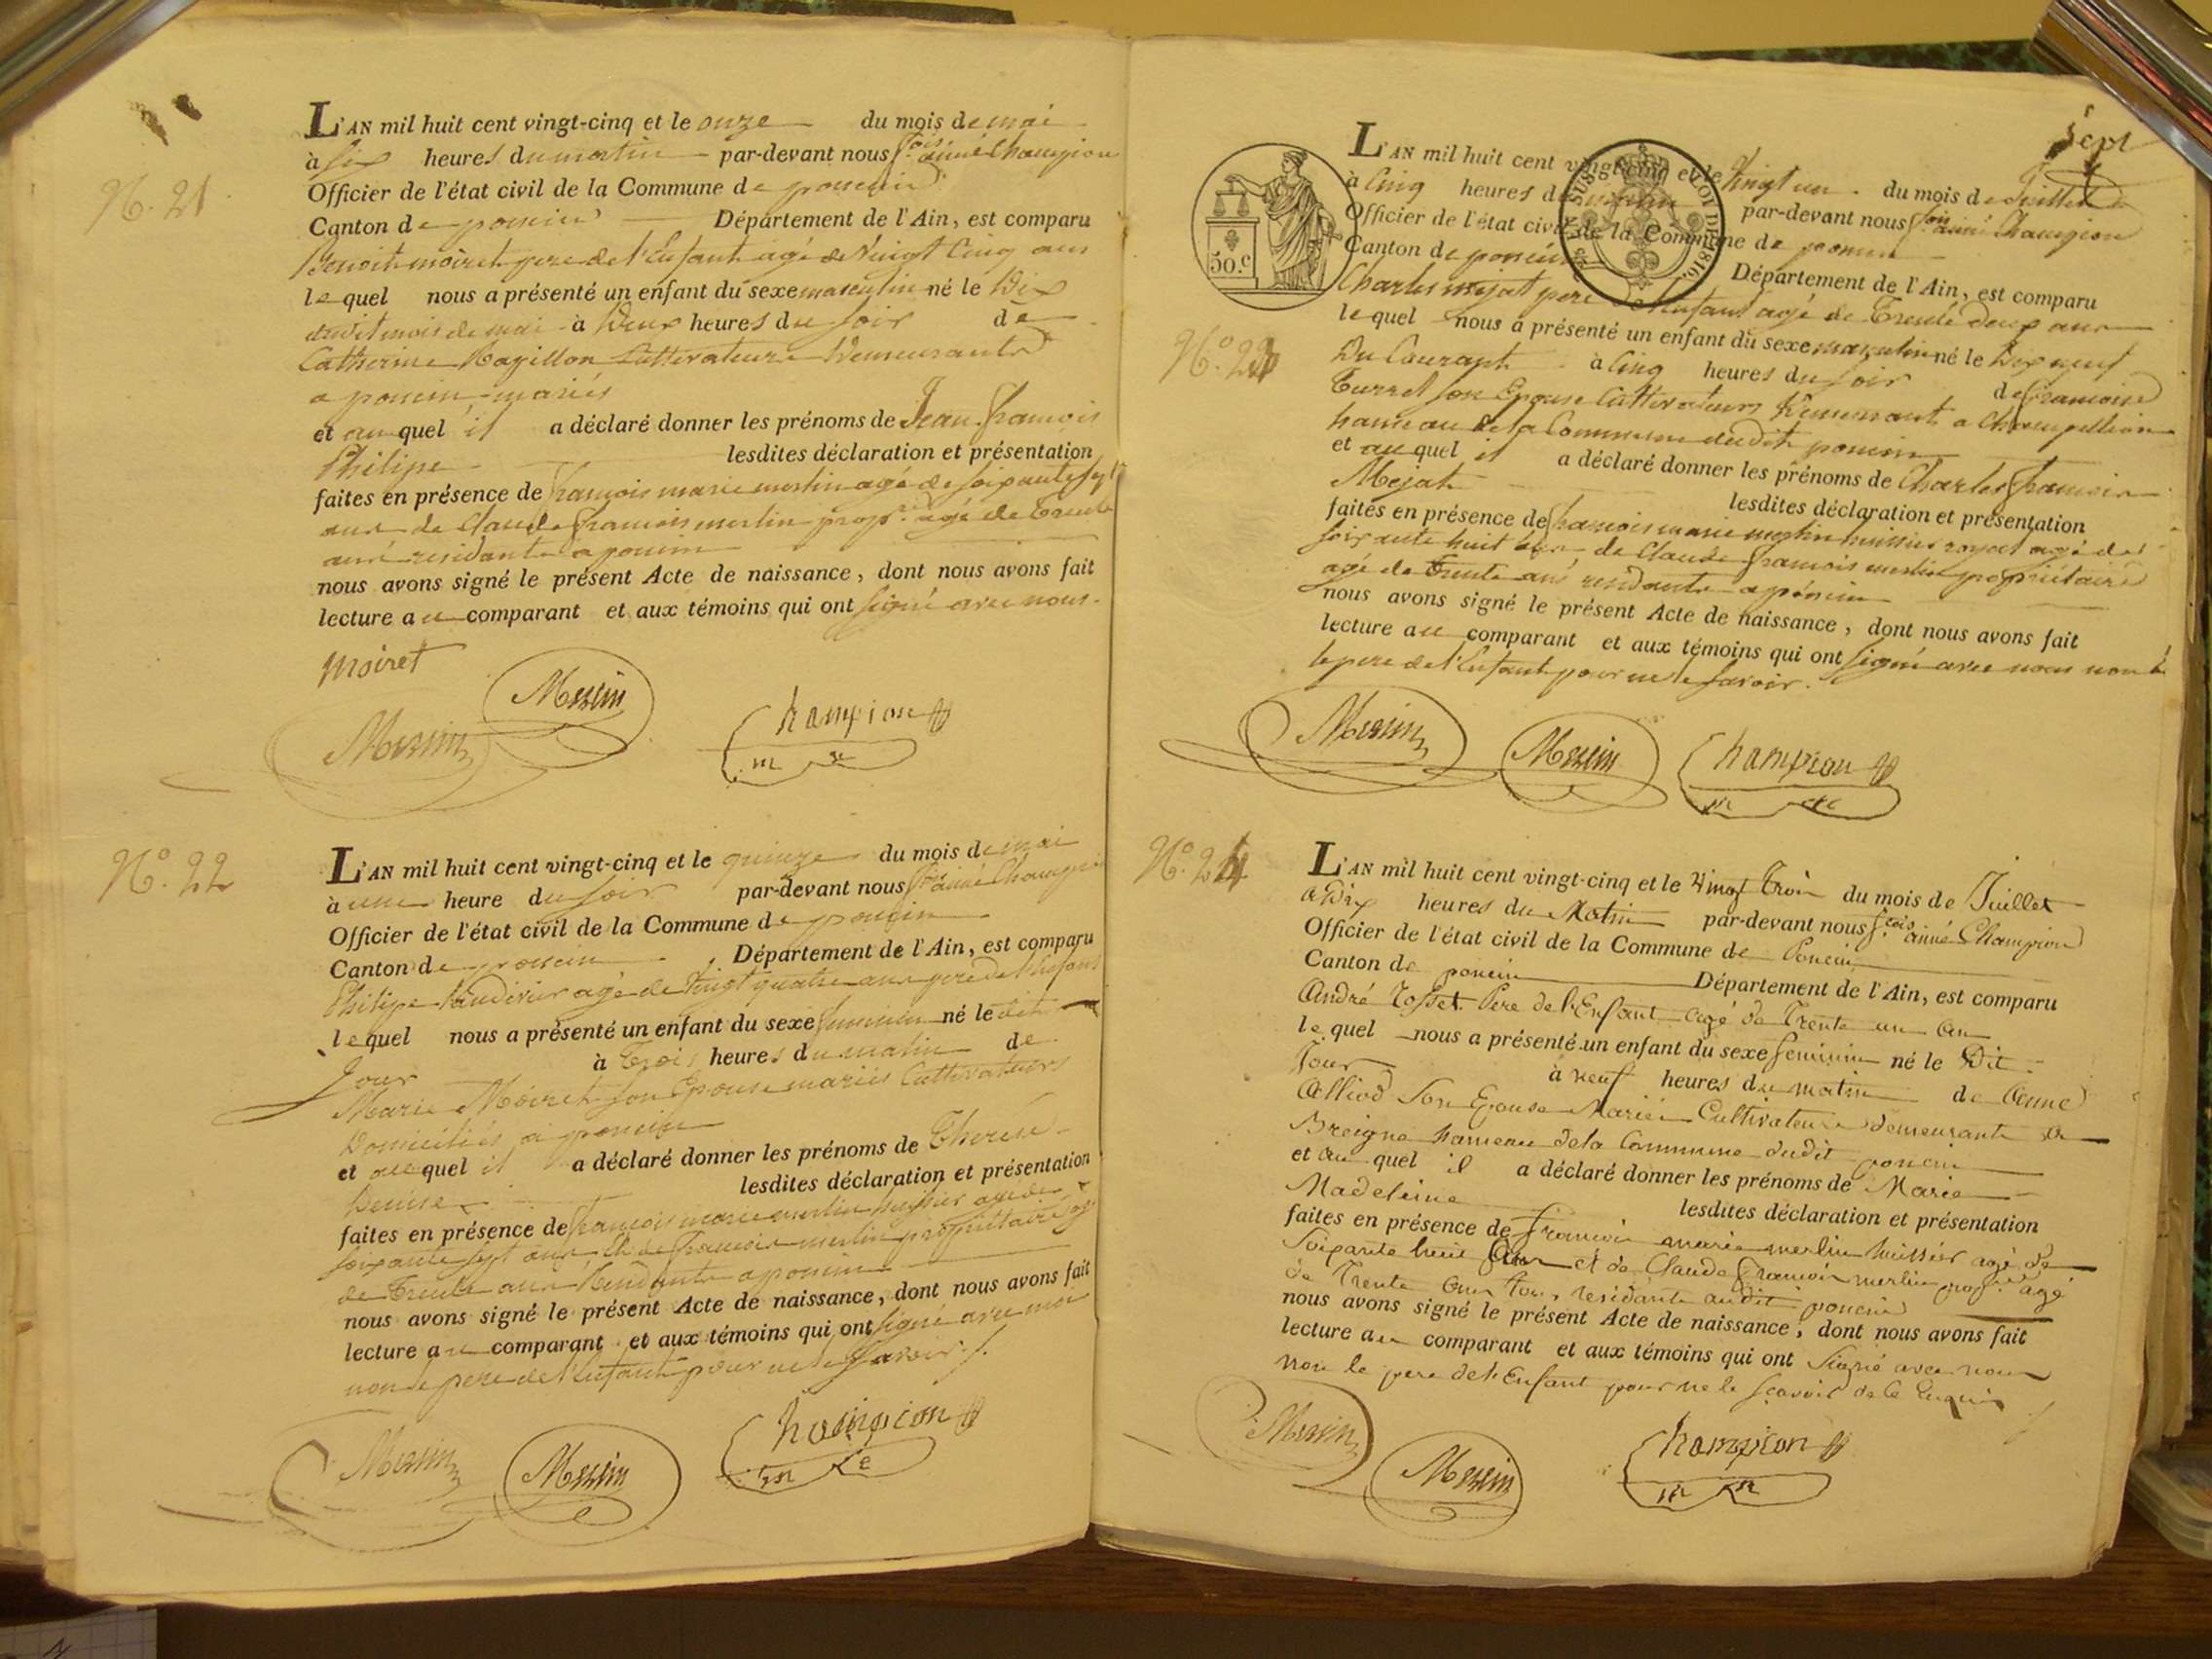 N.º 21
L'AN mil huit cent vingt-cinq et le onze du mois de mai
à six heures du matin par-devant nous f.cois aimé Champion
Officier de l'état civil de la Commune de poncin
Canton de poncin Département de l'Ain, est comparu
Benoit moiret pere de l'Enfant agé de Vingt Cinq ans
lequel nous a présenté un enfant du sexe masculin né le Dix
dudit mois de mai à Deux heures du soir de
Catherine Cultivateurs Demeurants
a poncin mariés
et au quel il a déclaré donner les prénoms de Jean françois
Philipe lesdites déclaration et présentation
faites en présence de françois marie merlin agé de soixante sept
ans de Claude francois merlin prop.re agé de trente
ans residants a poncin
nous avons signé le présent Acte de naissance, dont nous avons fait
lecture au comparant et aux témoins qui ont signé avec nous.
moiret
Merlin
Merlin
Champion
m re
N.º 22
L'AN mil huit cent vingt-cinq et le quinze du mois de mai
à une heure du soir par-devant nous f.cois aimé Champion
Officier de l'état civil de la Commune de poncin
Canton de poncin Département de l'Ain, est comparu
Philipe agé de Vingt quatre ans pere de l'Enfant
lequel nous a présenté un enfant du sexe feminin né le dit
Jour à Trois heures du matin de
Marie Moiret son Epouse mariés Cultivateurs
Domiciliés a poncin
et au quel il a déclaré donner les prénoms de Therese
Denise lesdites déclaration et présentation
faites en présence de françois marie merlin huissier agé de
soixante sept ans Cl. de francois merlin propriétaire agé
de Trente ans Residants a poncin
nous avons signé le présent Acte de naissance, dont nous avons fait
lecture au comparant et aux témoins qui ont signé avec moi
non le pere de l'Enfant pour ne le savoir ./.
Merlin
Merlin
Champion
m re
sept
50.c
LOI DE 1816.
N.º 23
L'AN mil huit cent vingt-cinq et le Vingt un du mois de Juillet
à Cinq heures du par-devant nous f.cois aimé Champion
Officier de l'état civil de la Commune de poncin
Canton de poncin Département de l'Ain, est comparu
Charles mejat pere de l'enfant agé de Trente Deux ans
lequel nous a présenté un enfant du sexe masculin né le Dix neuf
Du Courant à Cinq heures du soir de francoise
son Epouse Cultivateurs Demeurants a
hameau de la Commune dudit poncin
et au quel il a déclaré donner les prénoms de Charles francois
Mejat lesdites déclaration et présentation
faites en présence de francois marie merlin huissier royal agé de
soixante huit ans de Claude francois merlin propriétaire
agé de Trente ans residants a poncin
nous avons signé le présent Acte de naissance, dont nous avons fait
lecture au comparant et aux témoins qui ont signé avec nous non
le pere de l'Enfant pour ne le savoir.
Merlin
Merlin
Champion
m re
N.º 24
L'AN mil huit cent vingt-cinq et le Vingt Trois du mois de Juillet
à Dix heures du Matin par-devant nous f.cois aimé Champion
Officier de l'état civil de la Commune de Poncin
Canton de poncin Département de l'Ain, est comparu
André Pere de l'Enfant agé de Trente un an
lequel nous a présenté un enfant du sexe feminin né le Dit
Jour à neuf heures du matin de Anne
Alliod Son Epouse Mariés Cultivateurs demeurants a
Breigne hameau de la Commune dudit poncin
et au quel il a déclaré donner les prénoms de Marie
Madeleine lesdites déclaration et présentation
faites en présence de francois marie merlin huissier agé de
Soixante huit Ans et de Claude francois merlin prop.re agé
de Trente ans tous residants audit poncin
nous avons signé le présent Acte de naissance, dont nous avons fait
lecture au comparant et aux témoins qui ont Signé avec nous
non le pere de l'Enfant pour ne le sçavoir de ce Enquis
Merlin
Merlin
Champion
m re